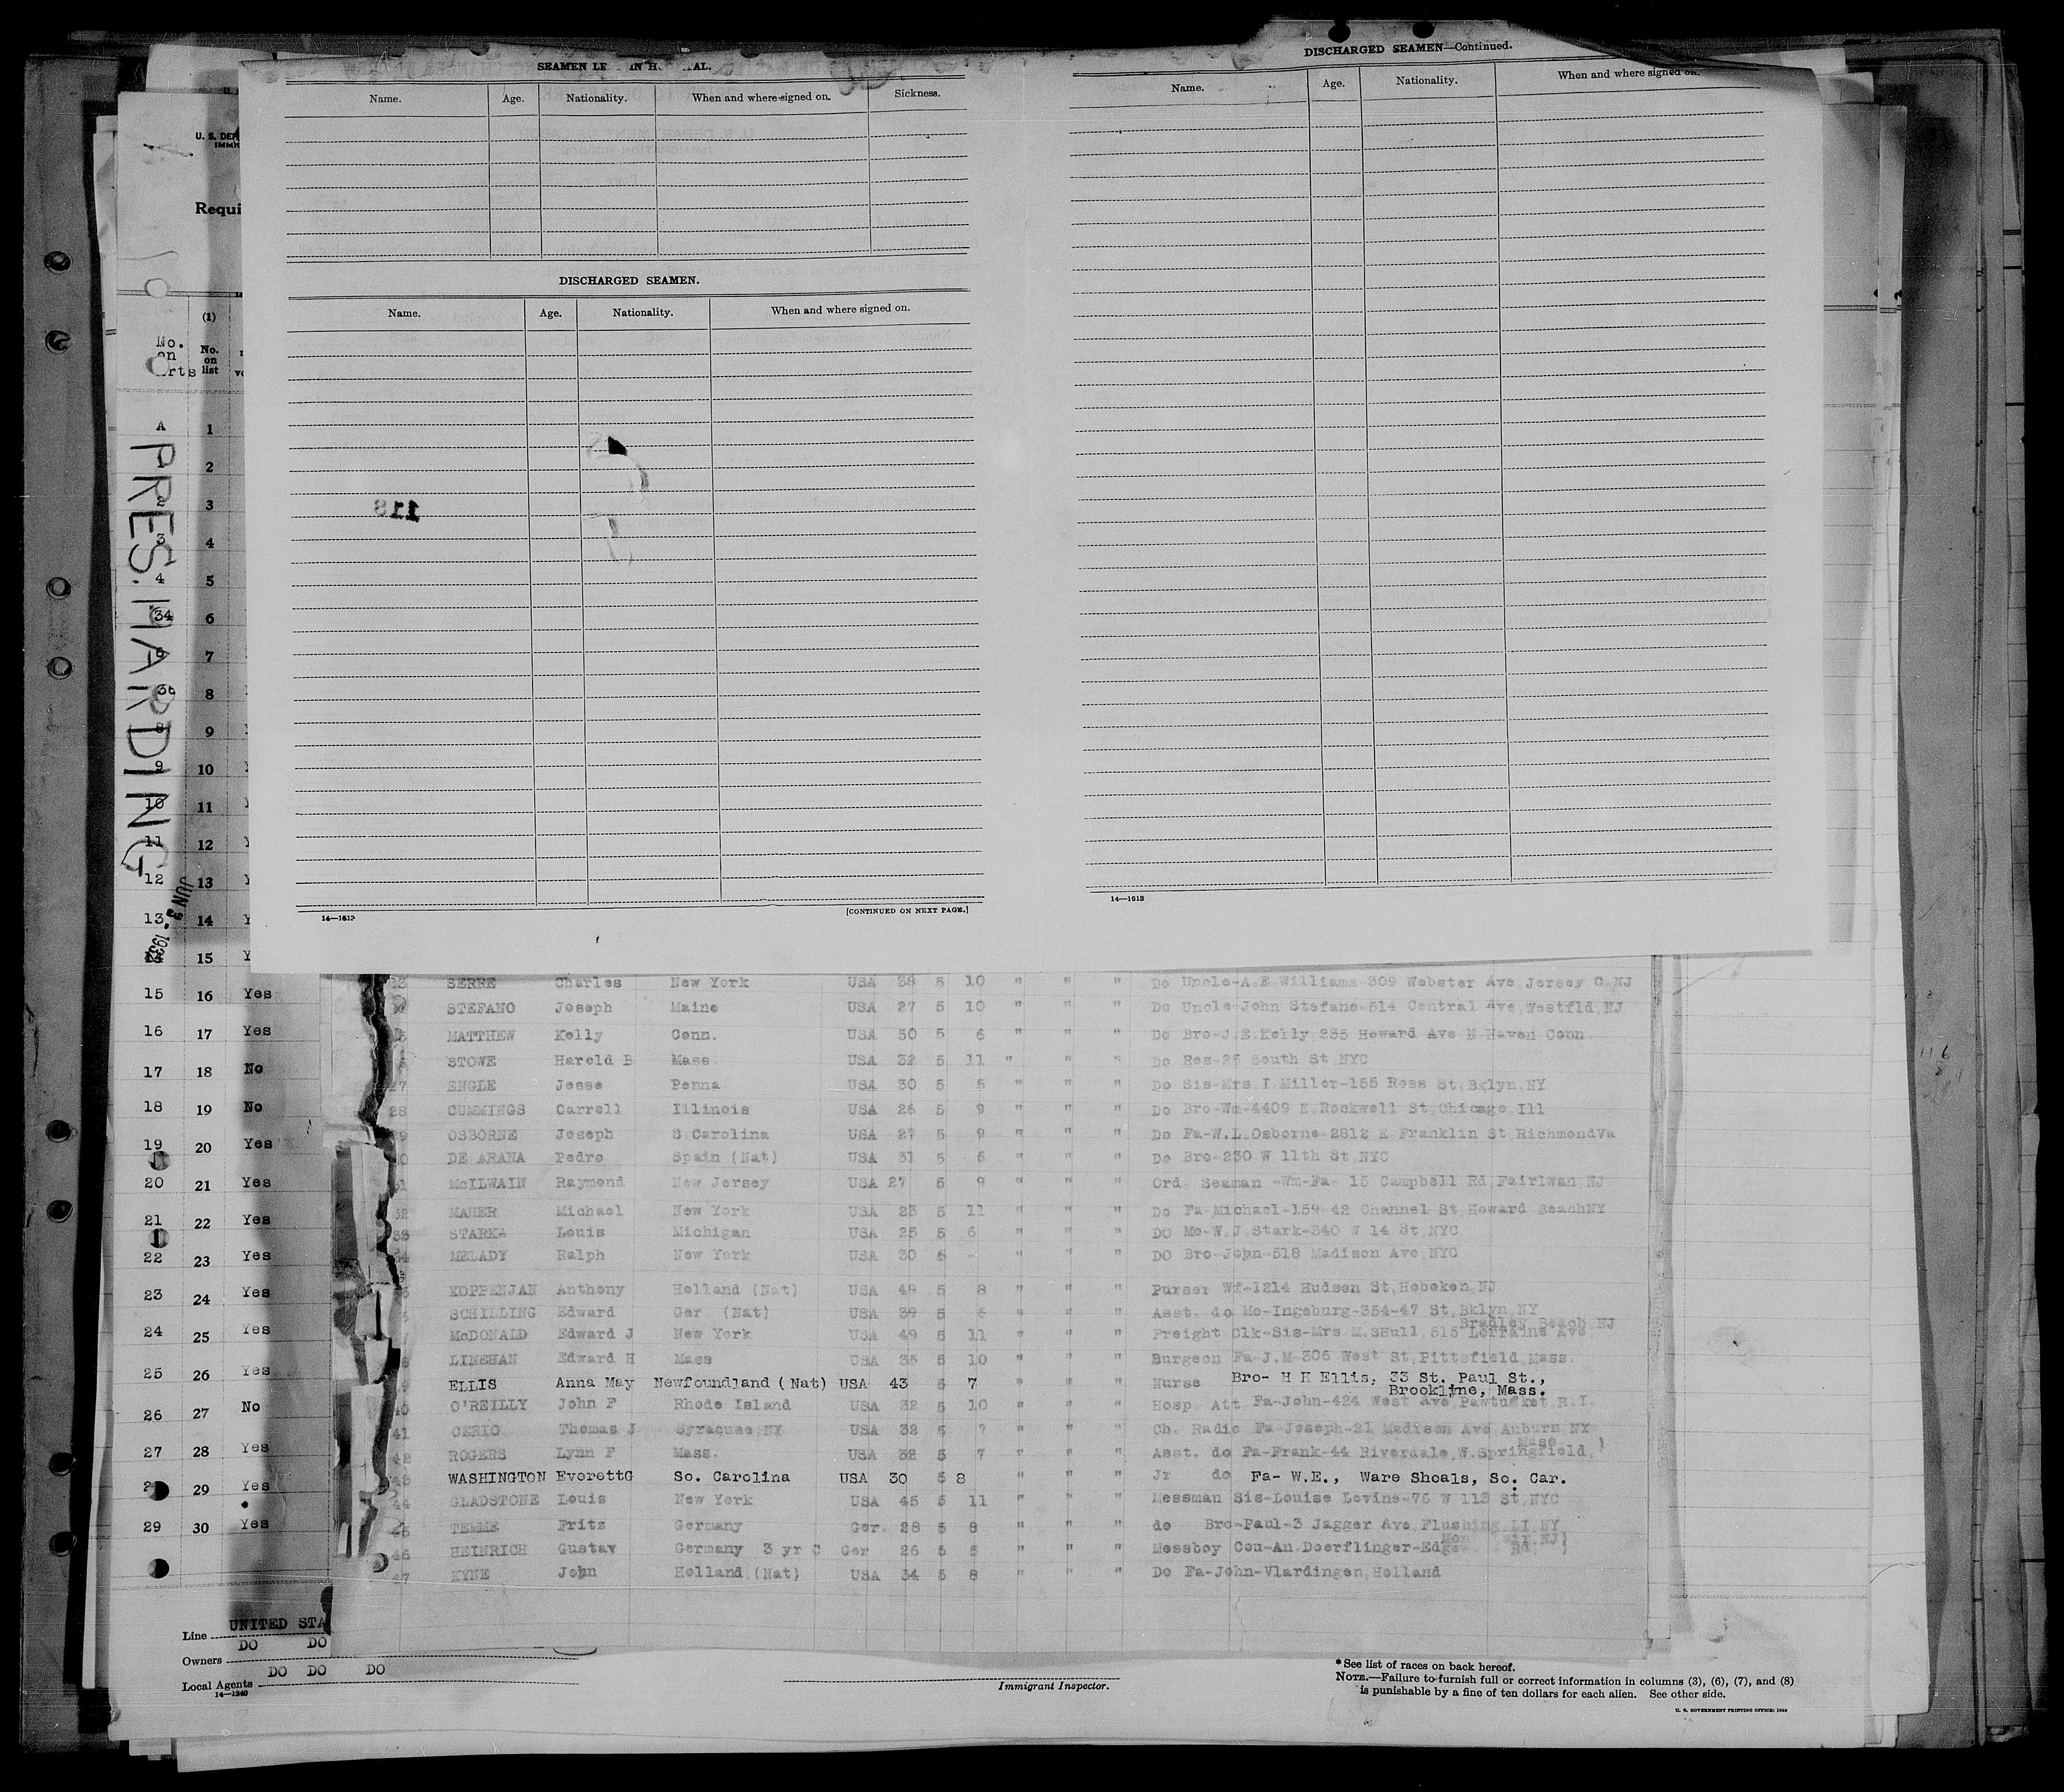 SEAMEN LE IN H AL.
Name. Age. Nationality. When and where signed on. Sickness.
DISCHARGED SEAMEN.
Name. Age. Nationality. When and where signed on.
118
14—1613
[CONTINUED ON NEXT PAGE.]
DISCHARGED SEAMEN—Continued.
Name. Age. Nationality. When and where signed on.
14—1613
U. S. DEP
IMMI
Requi
(1)
No. on list
PRES. HARDING
JUN 3 - 1932
A 1
2
2 3
3 4
4 5
34 6
6 7
36 8
8 9
9 10
10 11
11 12
12 13
13 14
15
15 16 Yes
16 17 Yes
17 18 No
18 19 No
19 20 Yes
20 21 Yes
21 22 Yes
22 23 Yes
23 24 Yes
24 25 Yes
25 26 Yes
26 27 No
27 28 Yes
29 Yes
29 30 Yes
SERRE Charles New York USA 38 5 10 " " " Do Uncle-A.E.Williams-309 Webster Ave Jersey C.NJ
STEFANO Joseph Maine USA 27 5 10 " " " Do Uncle-John Stefano-514 Central Ave,Westfld,NJ
MATTHEW Kelly Conn. USA 50 5 6 " " " Do Bro-J.E.Kelly 235 Howard Ave N Haven Conn
STOWE Harold B Mass USA 32 5 11 " " " Do Res-25 South St NYC
27 ENGLE Jesse Penna USA 30 5 5 " " " Do Sis-Mrs I Miller-155 Ross St,Bklyn,NY
28 CUMMINGS Carroll Illinois USA 26 5 9 " " " Do Bro-Wm-4409 E.Rockwell St,Chicago Ill
OSBORNE Joseph S Carolina USA 27 5 9 " " " Do Fa-W.L.Osborne-2812 E Franklin St RichmondVa
DE ARANA Pedro Spain (Nat) USA 31 5 6 " " " Do Bro-230 W 11th St NYC
McILWAIN Raymond New Jersey USA 27 5 9 " " " Ord. Seaman -Wm-Fa- 15 Campbell Rd,Fairlwan,NJ
MAHER Michael New York USA 23 5 11 " " " Do Fa-Michael-159-42 Channel St,Howard BeachNY
STARKA Louis Michigan USA 25 5 6 " " " DO Mo-W.J.Stark-340 W 14 St NYC
MELADY Ralph New York USA 30 6 " " " DO Bro-John-518 Madison Ave,NYC
KOPPENJAN Anthony Holland (Nat) USA 49 5 8 " " " Purser Wf-1214 Hudson St,Hoboken,NJ
SCHILLING Edward Ger (Nat) USA 39 5 6 " " " Asst. do Mo-Ingeburg-354-47 St,Bklyn,NY
McDONALD Edward J New York USA 49 5 11 " " " Freight Clk-Sis-Mrs.M.SHull,515 Lorraine Ave, Bradley Beach,NJ
LINEHAN Edward H Mass USA 35 5 10 " " " Surgeon Fa-J.M-306 West St,Pittsfield,Mass.
ELLIS Anna May Newfoundland (Nat) USA 43 5 7 " " " Nurse Bro- H H Ellis, 33 St. Paul St.,
Brookline, Mass.
O'REILLY John F Rhode Island USA 32 5 10 " " " Hosp. Att Fa-John-424 West Ave,Pawtucket,R.I.
41 CERIO Thomas J Syracuse,NY USA 32 5 7 " " " Ch. Radio Fa-Joseph-21 Madison Ave,Auburn,NY
42 ROGERS Lynn F Mass. USA 32 5 7 " " " Asst. do Fa-Frank-44 Riverdale,W.Springfield, Mass )
WASHINGTON EverettG So. Carolina USA 30 5 8 " " " Jr do Fa- W.E., Ware Shoals, So. Car.
44 GLADSTONE Louis New York USA 45 5 11 " " " Messman Sis-Louise Levine-76 W 113 St,NYC
45 TEMME Fritz Germany Ger. 28 5 8 " " " do Bro-Paul-3 Jagger Ave,Flushing,LI,NY
46 HEINRICH Gustav Germany 3 yr C Ger 26 5 5 " " " Messboy Cou-An.Doerflinger-Edge Rd, NJ)
47 KYNE John Holland (Nat) USA 34 5 8 " " " Do Fa-John-Vlardingen,Holland
Line UNITED STA
Owners DO DO
Local Agents DO DO DO
14—1240
Immigrant Inspector.
* See list of races on back hereof.
NOTE.—Failure to furnish full or correct information in columns (3), (6), (7), and (8)
is punishable by a fine of ten dollars for each alien. See other side.
U. S. GOVERNMENT PRINTING OFFICE: 1929